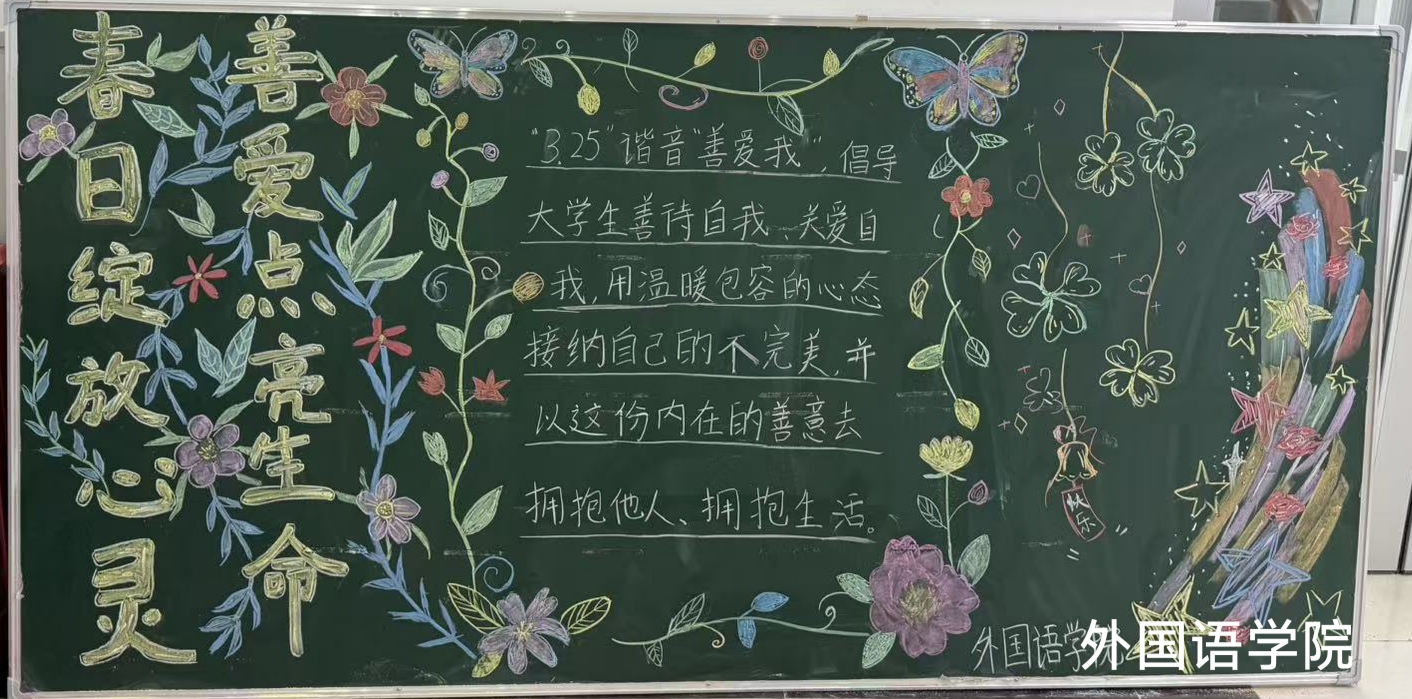 善爱点亮生命
春日绽放心灵
“3.25”谐音“善爱我”,倡导
大学生善待自我、关爱自
我,用温暖包容的心态
接纳自己的不完美,并
以这份内在的善意去
拥抱他人、拥抱生活。
快乐
外国语学院
外国语学院